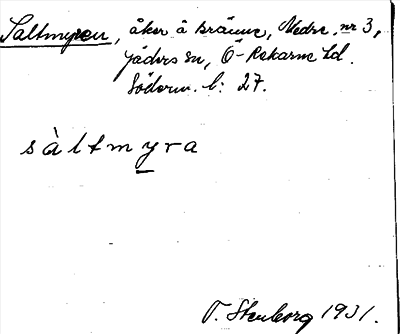 Saltmyren, åker å Bränne, Nedre, nr 3,
Jäders sn, Ö-Rekarne hd.
Söderm. l: 27.
sàltmyra
T. Stenborg 1931.